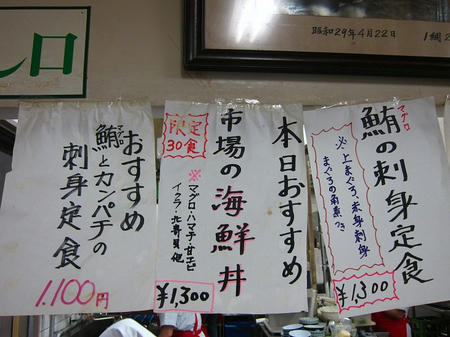 し口
昭和29年4月22日
マグロ
鮪の刺身定食
※上まぐろ、赤身刺身
まぐろの角煮つき
¥1,300
本日おすすめ
市場の海鮮丼
限定
30食
※マグロ・ハマチ・甘エビ
イクラ・北寄貝他
¥1,300
おすすめ
鮪とカンパチの
刺身定食
1.100円